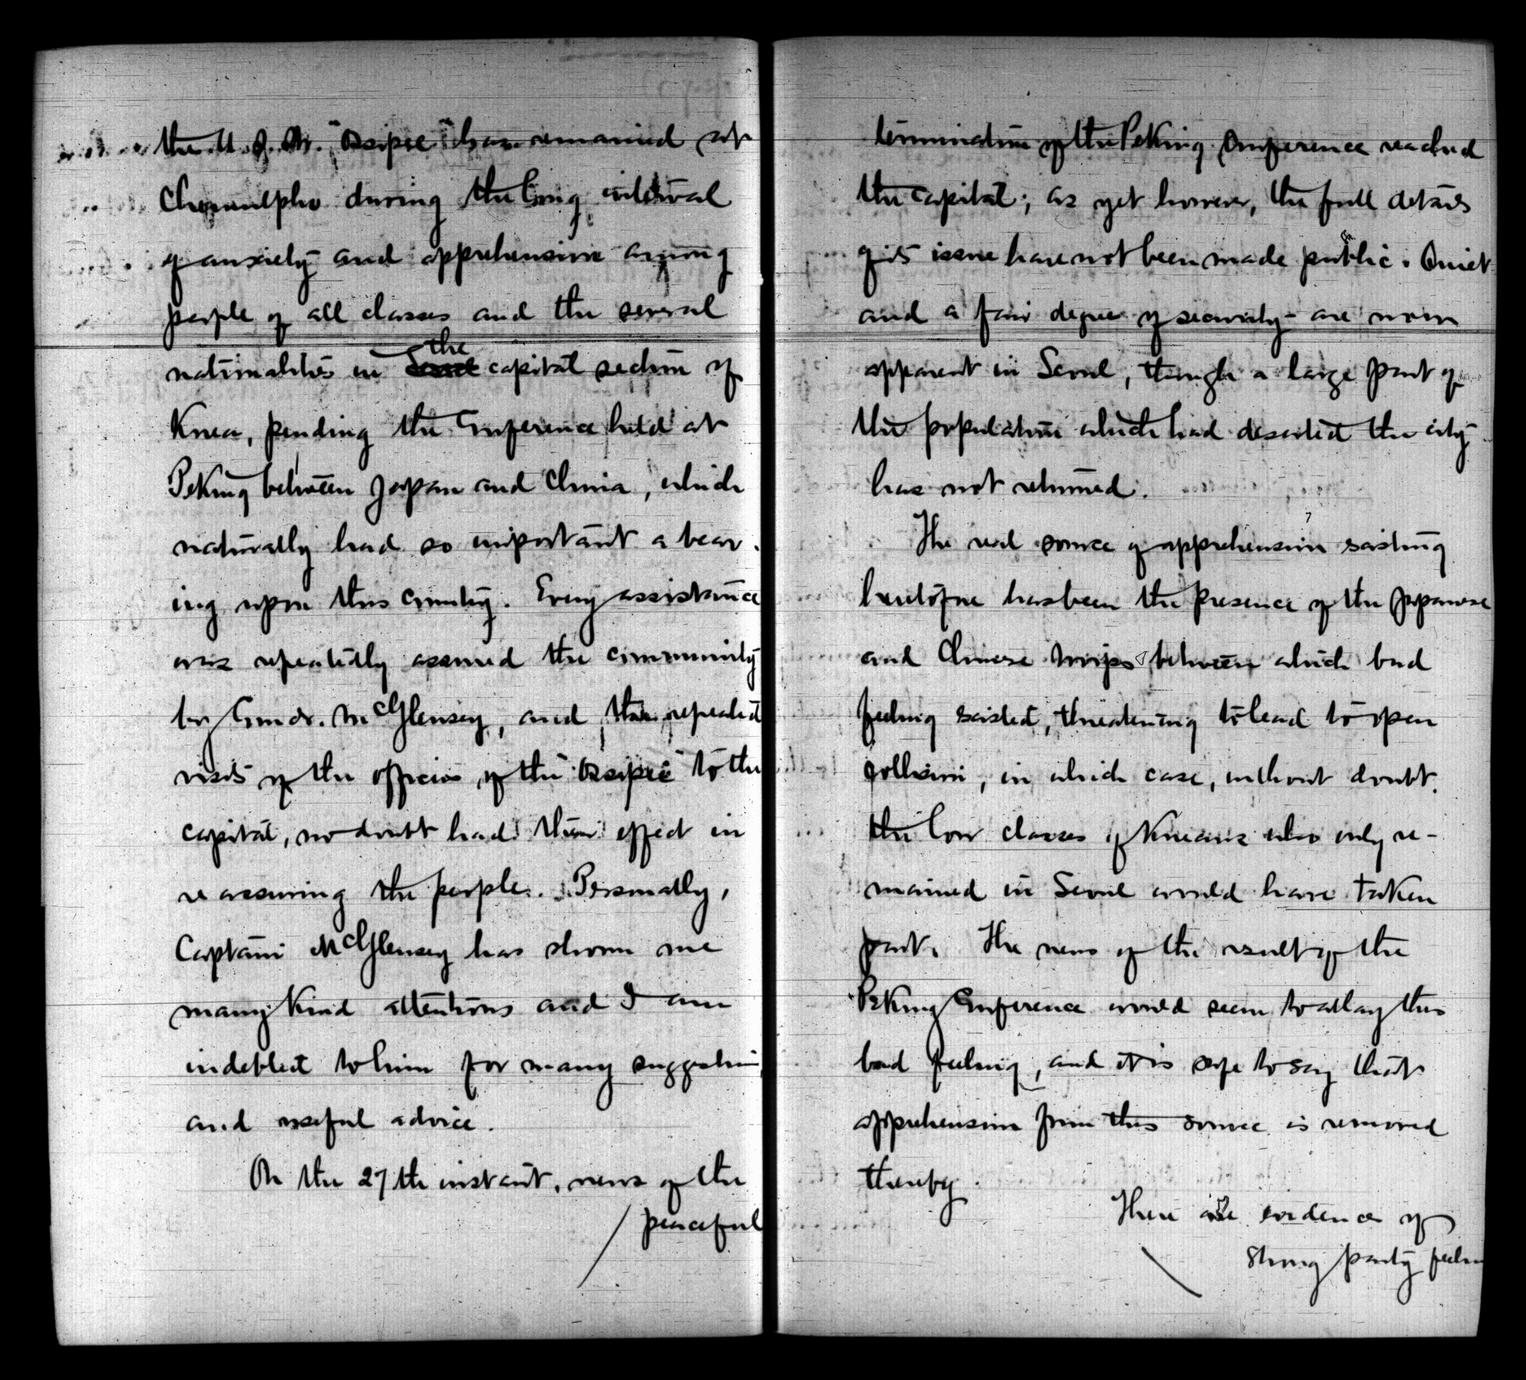 the U.S.S. "Ossipee" has remained at
Chemulpho during the long interval
of anxiety and apprehension among
people of all classes and the several
nationalities in the capital section of
Korea, pending the Conference held at
Peking between Japan and China, which
naturally had so important a bear-
ing upon this country. Every assistance
was repeatedly assured the community
by Comdr. McGlensey, and the repeated
visits of the officers of the "Ossipee" to the
capital, no doubt had their effect in
reassuring the people. Personally,
Captain McGlensey has shown me
many kind attentions and I am
indebted to him for many suggestions
and useful advice.
On the 27th instant, news of the
peaceful
termination of the Peking Conference reached
the capital; as yet however, the full details
of its issue have not been made public. Quiet
and a fair degree of security are now
apparent in Seoul, though a large part of
the population which had deserted the city
has not returned.
The real source of apprehension existing
heretofore has been the presence of the Japanese
and Chinese troops between which bad
feeling existed, threatening to lead to open
collision, in which case, without doubt,
the low classes of Koreans who only re-
mained in Seoul would have taken
part. The news of the result of the
Peking Conference would seem to allay this
bad feeling, and it is safe to say that
apprehension from this source is removed
thereby.
There is evidence of
strong party feelin